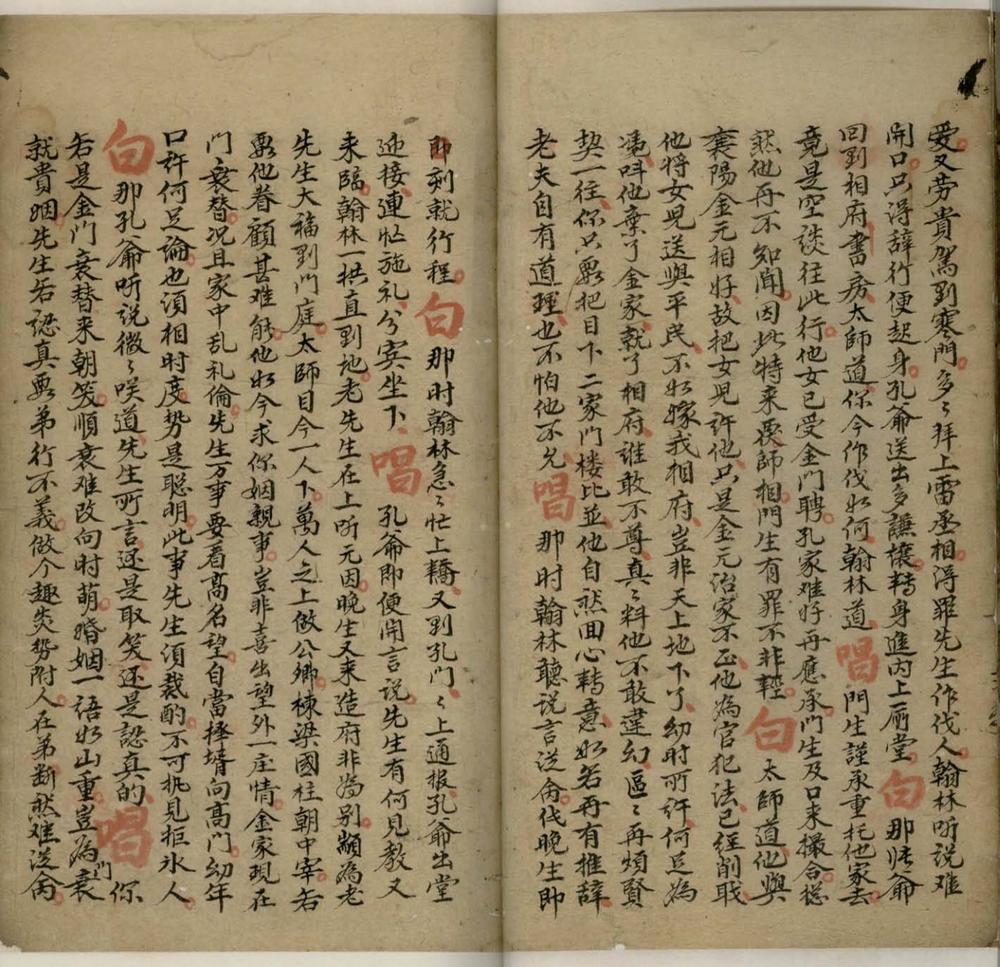 爱又劳貴駕到寒門多〻拜上雷丞相得罪先生作伐人翰林听說难
開口只得辞行便起身孔爺送出多謙讓轉身進内上㕔堂白那时爺
回到相府書房太師道你今作伐如何翰林道唱門生謹承重托他家去
竟是空談往此行他女已受金門聘孔家难好再應承門生及口来撮合怹
然他再不知聞因此特来覆師相門生有罪不非輕白太師道他與
襄陽金元相好故把女兒許他只是金元治家不正他為官犯法已經削戝
他將女兒送與平民不如嫁我相府豈非天上地下了幼时所許何足為
憑呌他棄了金家就了相府誰敢不尊真〻料他不敢違幻區〻再煩賢
契一往你只要把目下二家門楼比並他自然回心轉意如若再有推辞
老夫自有道理也不怕他不允唱那时翰林聽說言従命代晚生即
即刻就行程白那时翰林急〻忙上轎又到孔門〻上通报孔爺出堂
迎接連忙施礼分宾坐下唱孔爺即便開言說先生有何見教又
来臨翰林一拱直到地老先生在上听元因晚生又来造府非為别顓為老
先生大福到門庭太師目今一人下萬人之上做公卿棟梁國柱朝中宰若
要他眷顧甚难能他如今求你姻親事豈非喜出望外一庄情金家現在
門衰替况且家中乱礼倫先生万事要看高名望自當擇壻向高門幼年
口許何足論也須相时度势是聪明此事先生須裁酌不可执見拒氷人
白那孔爺听說微〻咲道先生所言还是取笑还是認真的唱你
若是金門衰替来朝笑順衰难改向时萌婚姻一語如山重豈為門衰
就貴姻先生若認真要弟行不義做个趨炎势附人在弟断然难従命